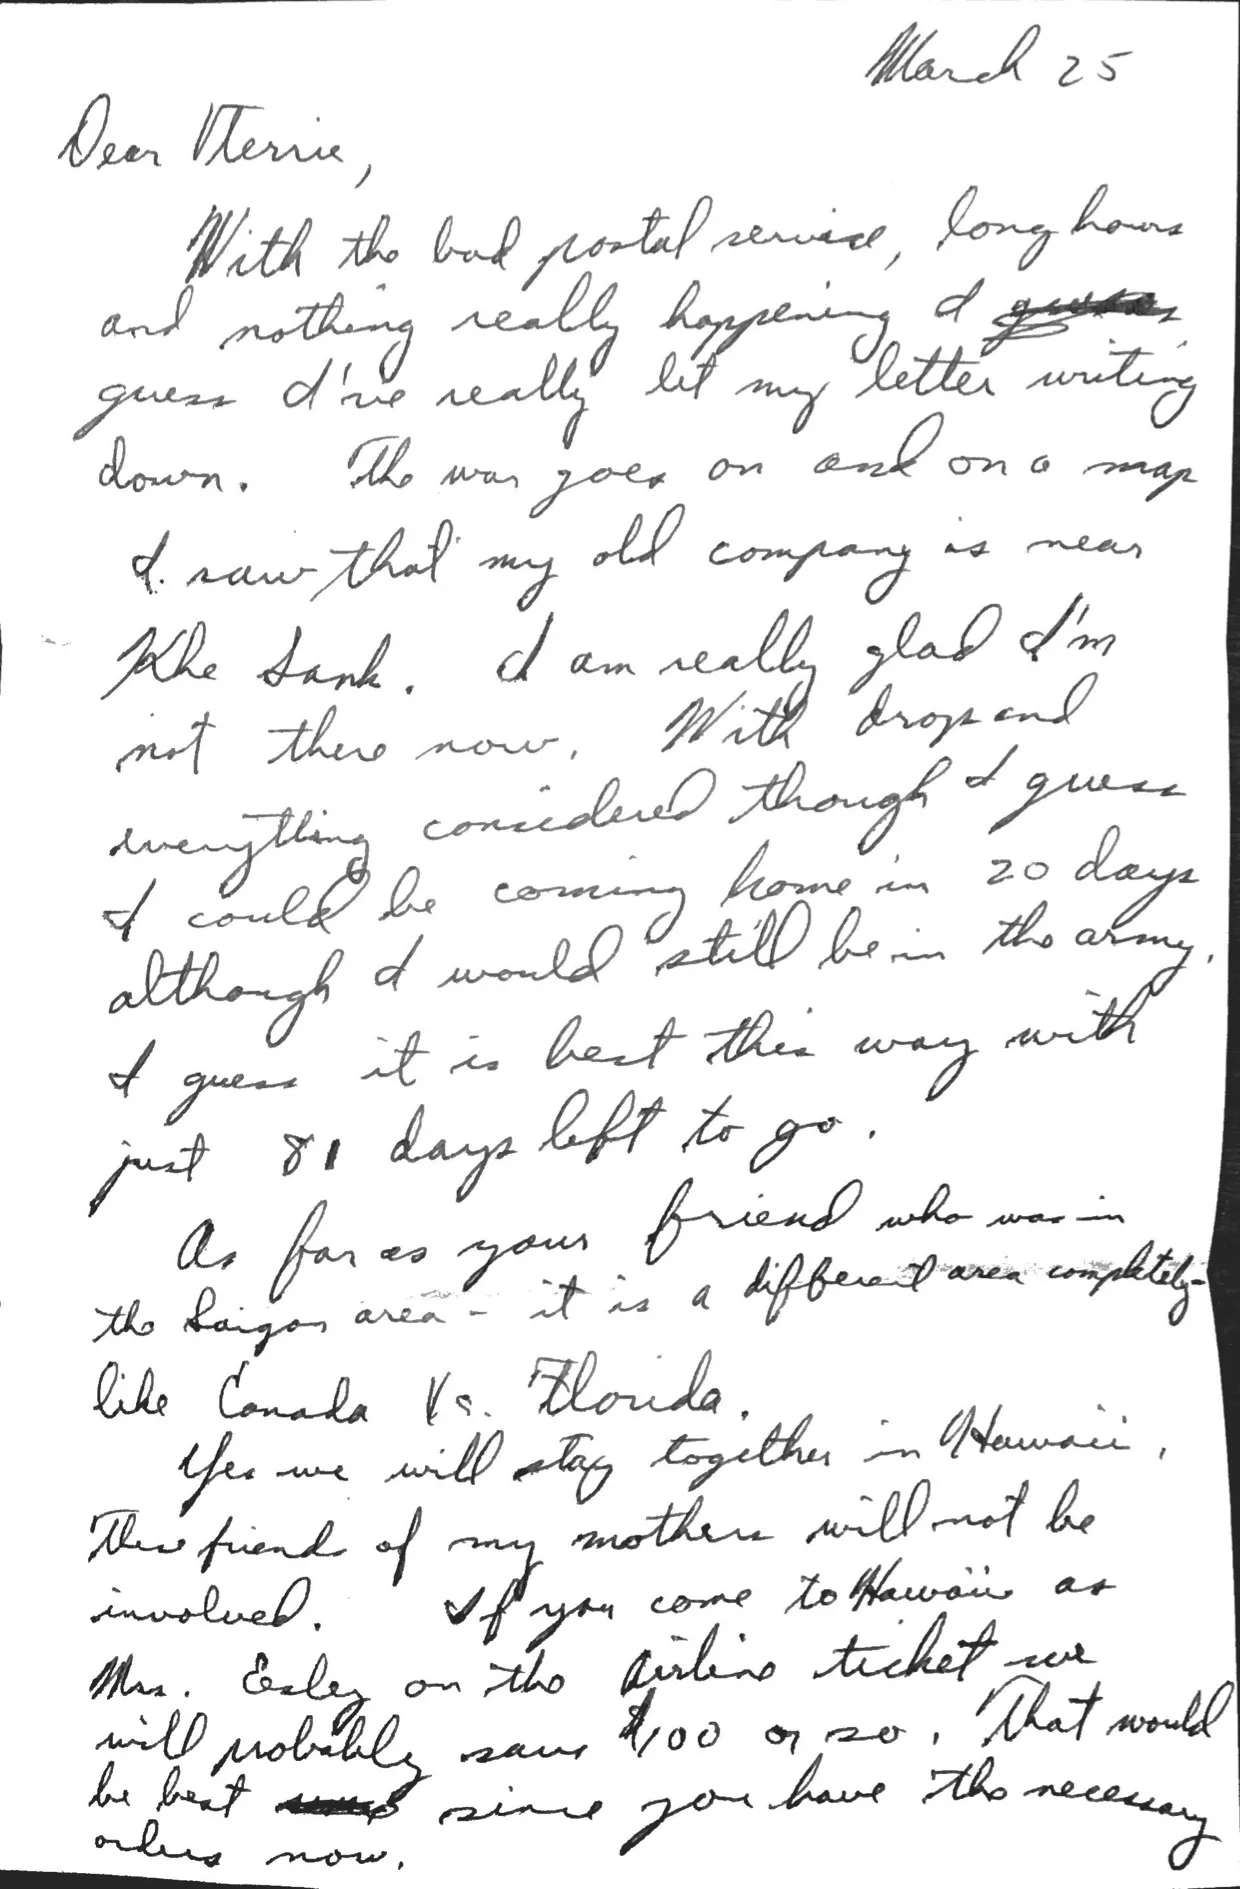 March 25
Dear Terrie,
With the bad postal service, long hours
and nothing really happening I
guess I've really let my letter writing
down. The war goes on and on a map
I saw that my old company is near
Khe Sanh. I am really glad I'm
not there now. With drops and
everything considered though I guess
I could be coming home in 20 days
although I would still be in the army.
I guess it is best this way with
just 81 days left to go.
As far as your friend who was in
the Saigon area - it is a different area completely -
like Canada Vs. Florida.
Yes we will stay together in Hawaii.
These friends of my mothers will not be
involved. If you come to Hawaii as
Mrs. on the airline ticket we
will probably save $100 or so. That would
be best since you have the necessary
orders now.